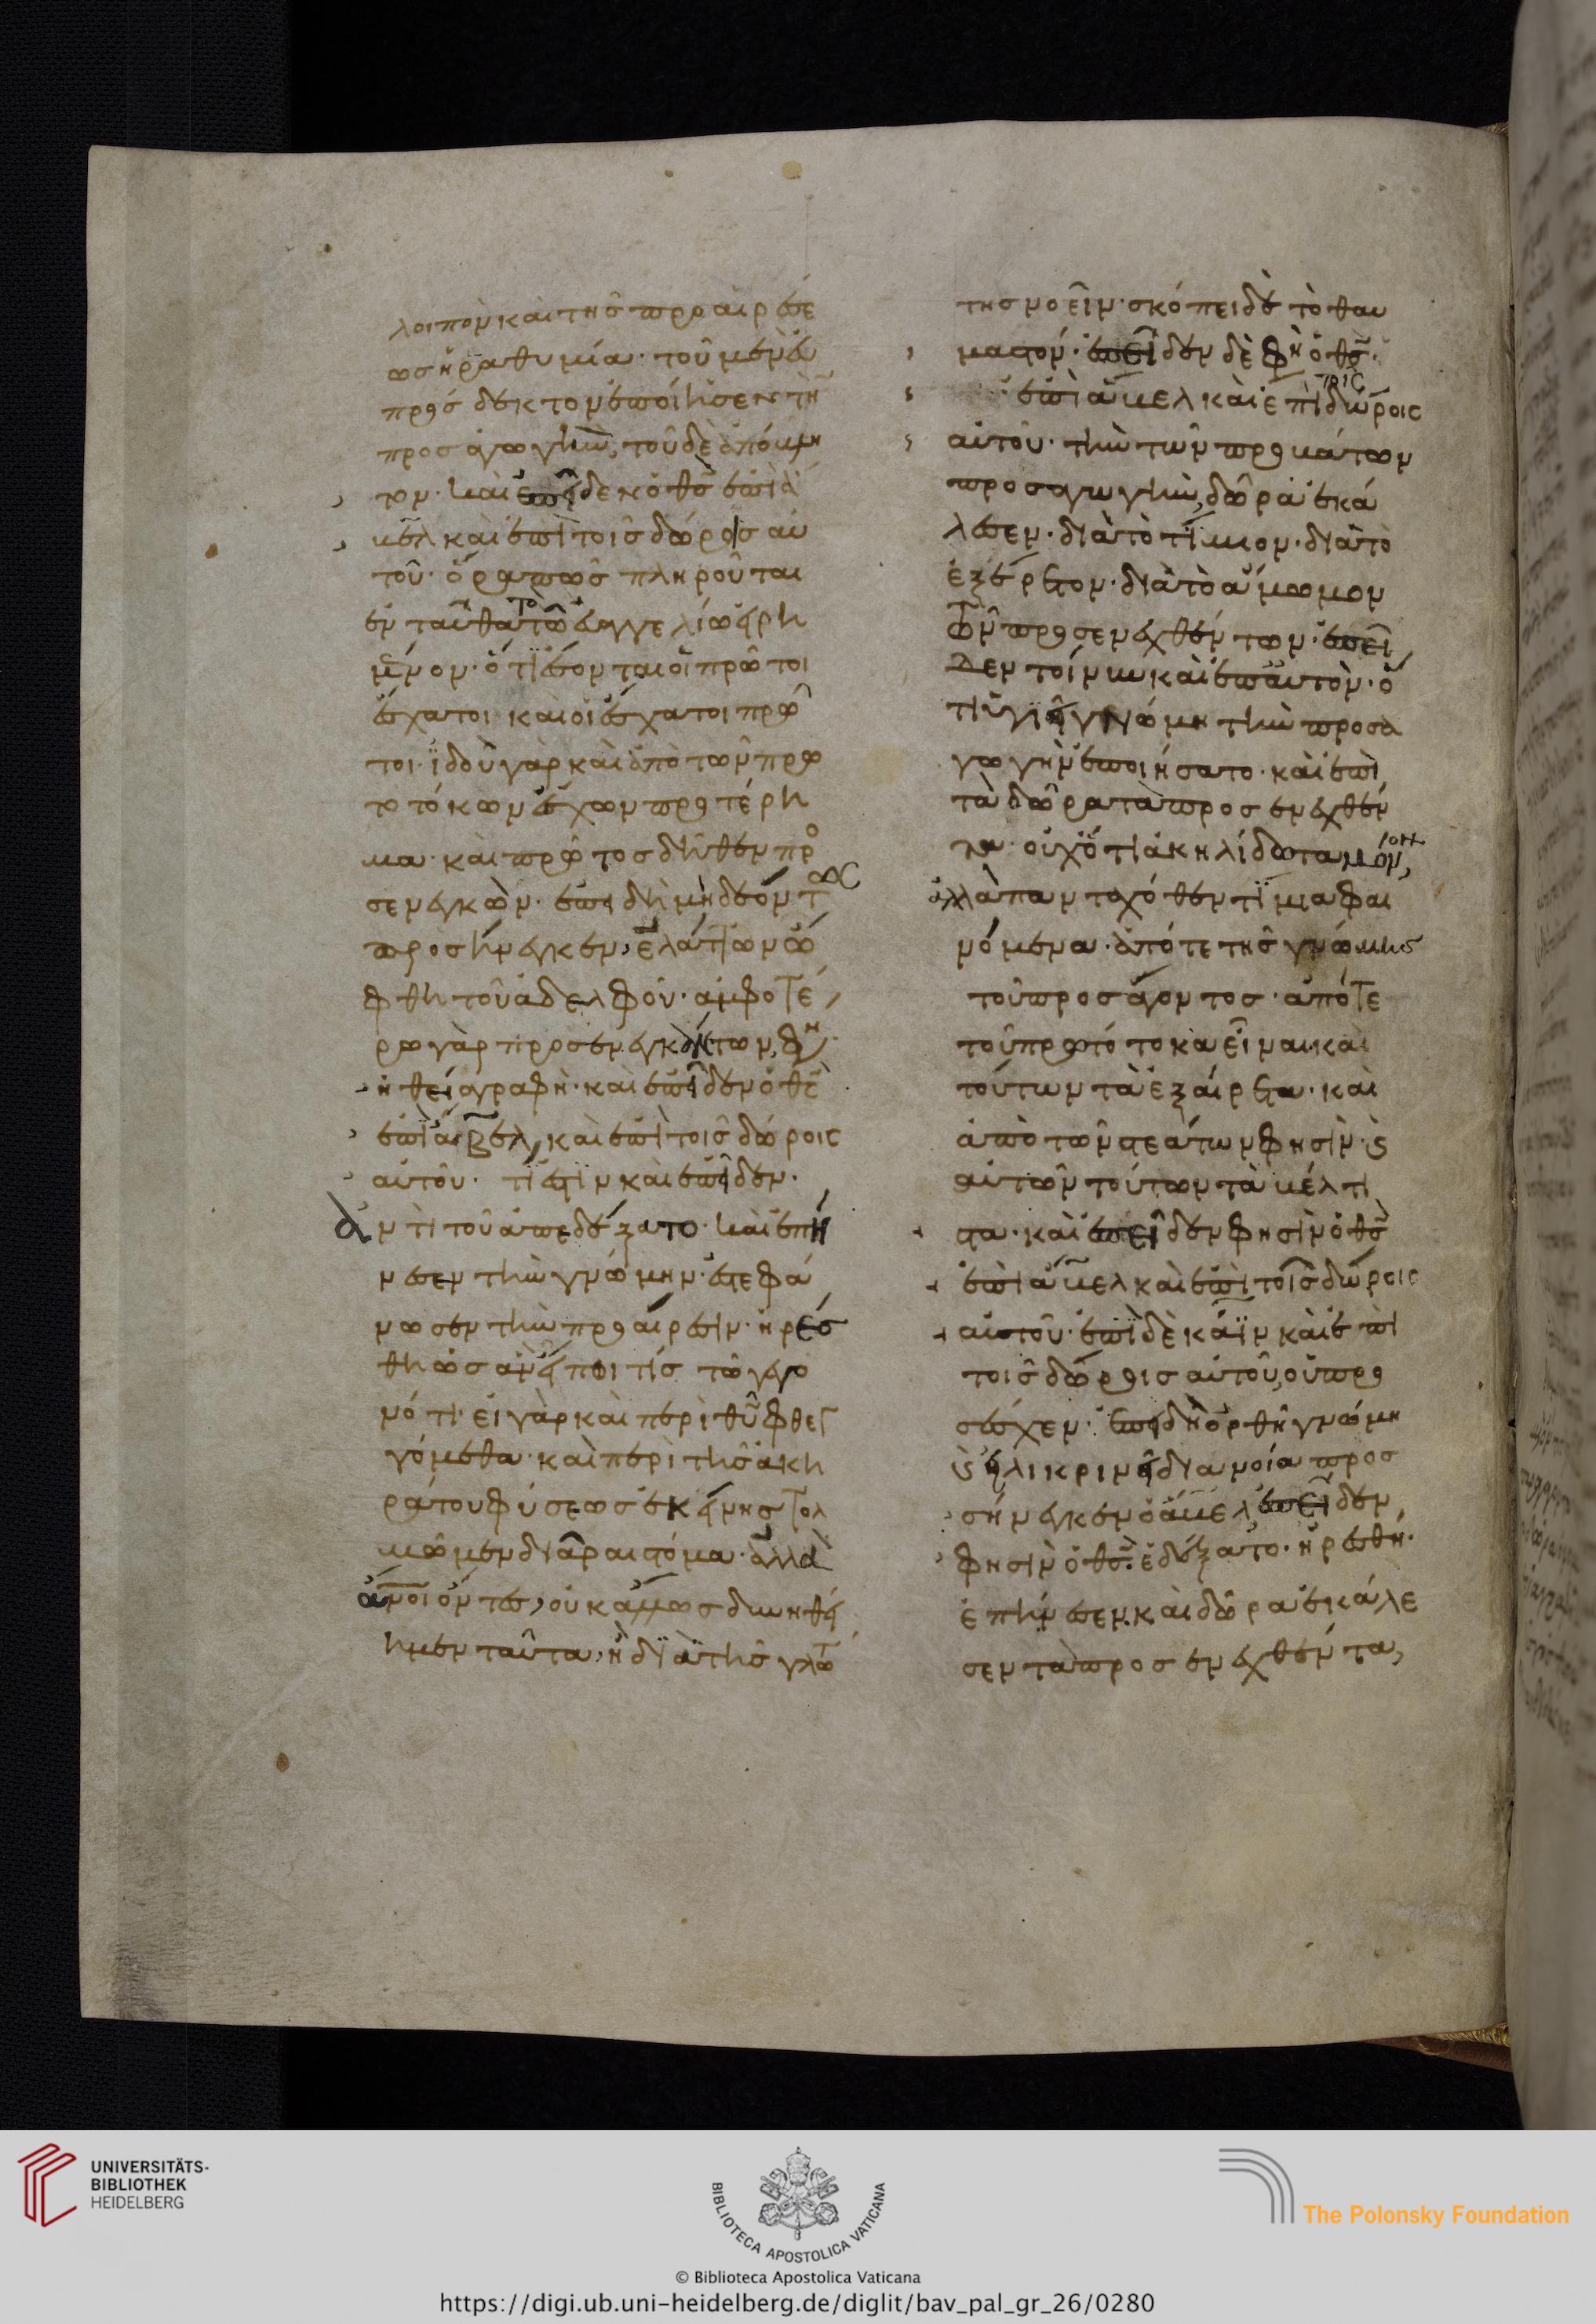 λοιπὸν καὶ τῆς προαιρέσε
ως ἡ ραθυμία· τοῦ μὲν εὐ
πρόσδεκτον ἐποίησεν τὴν
προσαγωγὴν, τοῦ δὲ ἀπόβλη
τον· καὶ ἐπεῖδεν ὁ θς ἐπὶ ἀ
βελ καὶ ἐπὶ τοῖς δώροις αὐ
τοῦ· ὅρα πῶς πληροῦται
ἐνταῦθα τὸ ἐν τῶ εὐαγγελίω εἰρη
μένον· ὅτι ἔσονται οἱ πρῶτοι
ἔσχατοι καὶ οἱ ἔσχατοι πρῶ
τοι· ἰδοὺ γὰρ καὶ ἀπὸ τῶν πρω
τοτόκων ἔχων προτέρη
μα· καὶ πρῶτος διῆθεν προ
σενεγκὼν· ἐπειδὴ μὴ δεόντως
προσήνεγκεν, ἐλάττων ὤ
φθη τοῦ ἀδελφοῦ· ἀμφοτέ
ρω γὰρ προσενεγκόντων, φη
ἡ θεία γραφὴ· καὶ ἐπεῖδεν ὁ θς
ἐπὶ ἄβελ, καὶ ἐπὶ τοῖς δώροις
αὐτοῦ· τί ἐστιν καὶ ἐπεῖδεν·
ἀντὶ τοῦ ἀπεδέξατο· καὶ ἐπή
νεσεν τὴν γνώμην· ἐστεφά
νωσεν τὴν προαίρεσιν· ἠρέσ
θη ὡς ἂν εἴποι τίς τῶ γεγο
νότι· εἰ γὰρ καὶ περὶ θυ φθεγ
γόμεθα· καὶ περὶ τῆς ἀκη
ράτου φύσεως ἐκείνης τολ
μῶμεν διᾶραι στόμα· ἀλλὰ
ἄνοι ὄντες, οὐκ ἄλλως δυνηθεί
ημεν ταῦτα, ἢ διὰ τῆς γλώτ
της νοεῖν· σκόπει δὲ τὸ θαυ
μαστόν· ἐπεῖδεν δὲ φη ὁ θς·
ἐπὶ ἄβελ καὶ ἐπὶ δώροις
αὐτοῦ· τὴν τῶν προβάτων
προσαγωγὴν, δῶρα ἐκά
λεσεν· διὰ τὸ τίμιον· διὰ τὸ
ἐξαίρετον· διὰ τὸ ἄμωμον
τῶν προσενεχθέντων· ἐπεῖ
δεν τοίνυν καὶ ἐπ' αὐτὸν· ὅ
τι ὑγιεῖ γνώμη τὴν προσα
γωγὴν ἐποιήσατο· καὶ ἐπὶ
τὰ δῶρα τὰ προσενεχθέν
τα· οὐχ ὅτι ἀκηλίδωτα μόνον,
ἀλλὰ πανταχόθεν τίμια φαι
νόμενα· ἀπό τε τῆς γνώμης
τοῦ προσάγοντος· ἀπό τε
τοῦ πρωτότοκα εἶναι· καὶ
τούτων τὰ ἐξαίρετα· καὶ
ἀπὸ τῶν στεάτων φησὶν· καὶ
αὐτῶν τούτων τὰ κάλλι
στα· καὶ ἐπεῖδεν φησὶν ὁ θς
ἐπὶ ἄβελ καὶ ἐπὶ τοῖς δώροις
αὐτοῦ· ἐπὶ δὲ κάϊν καὶ ἐπὶ
τοῖς δώροις αὐτοῦ, οὐ προ
σέσχεν· ἐπειδὴ ὀρθῆ γνώμη
καὶ εἰλικρινεῖ διανοία προσ
ήνεγκεν ὁ ἄβελ, ἐπεῖδεν,
φησὶν ὁ θς· ἐδέξατο· ἠρέσθη·
ἐπήνεσεν· καὶ δῶρα ἐκάλε
σεν τὰ προσενεχθέντα,
UNIVERSITÄTS-
BIBLIOTHEK
HEIDELBERG
BIBLIOTECA APOSTOLICA VATICANA
The Polonsky Foundation
© Biblioteca Apostolica Vaticana
https://digi.ub.uni-heidelberg.de/diglit/bav_pal_gr_26/0280